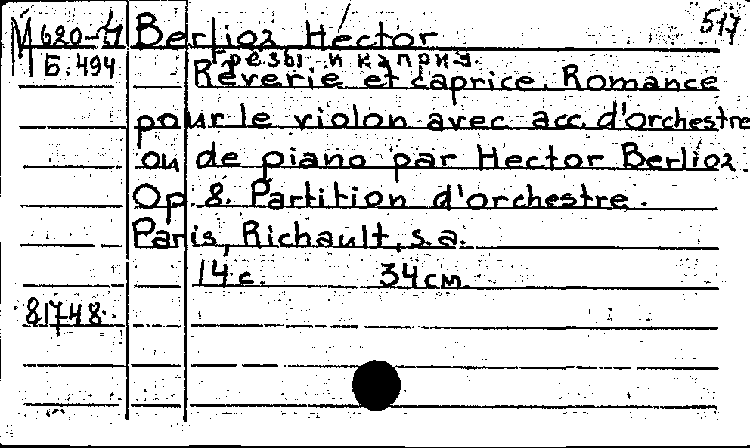 517
М 620-41 Berlioz Hector
Б.494 Грезы и каприз.
Rêverie et caprice. Romance
pour le violon avec acc. d'orchestre
ou de piano par Hector Berlioz.
Op. 8. Partition d'orchestre.
Paris, Richault, s.a.
14 с. 34 см
81748